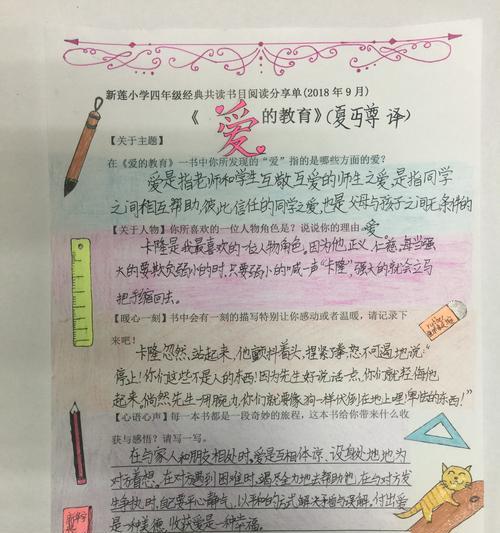 新莲小学四年级经典共读书目阅读分享单(2018年9月)
《爱的教育》(夏丏尊 译)
【关于主题】
在《爱的教育》一书中你所发现的“爱”指的是哪些方面的爱?
爱是指老师和学生互敬互爱的师生之爱,是指同学
之间相互帮助、彼此信任的同学之爱,也是父母与孩子之间无条件的
爱。
【关于人物】你所喜欢的一位人物角色是?说说你的理由
卡隆是我最喜欢的一位人物角色。因为他正义、仁慈,每当强
大的要欺负弱小的时,只要弱小的喊一声“卡隆”,强大的就会立马
把手缩回去。
【暖心一刻】书中会有一刻的描写特别让你感动或者温暖,请记录下
来吧!
卡隆忽然站起来,他颤抖着头,捏紧了拳,怒不可遏地说:“
停止!你们这些不是人的东西!因为先生好说话一点,你们就轻侮他
起来,倘然先生一用腕力,你们就要像狗一样伏倒在地上哩!卑怯的东西!”
【心语心声】每一本书都是一段奇妙的旅程,这本书给你带来什么收
获与感悟?请写一写。
在与家人和朋友相处时,爱是互相体谅、设身处地地为
对方着想。在对方遇到困难时,竭尽全力地去帮助他,在与对方发
生争执时,自己要平心静气,以平和的方式解决矛盾与误解,付出爱
是一种美德,收获爱是一种幸福。